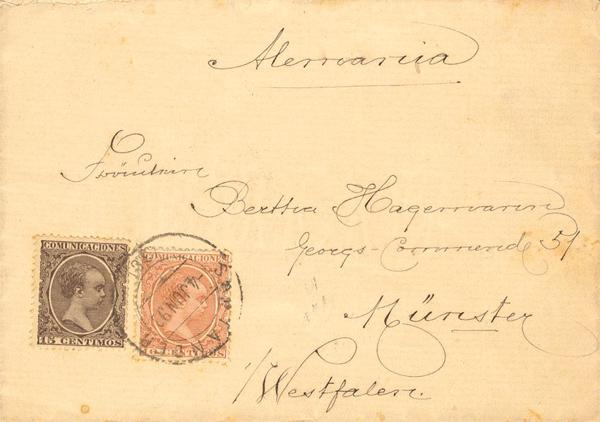 Alemania
Fräulein
Bertha Hagemann
Georgs-Commende 51
Münster
i/Westfalen.
COMUNICACIONES
15 CENTIMOS
COMUNICACIONES
CENTIMOS
SANTANDER
4 JUN 9